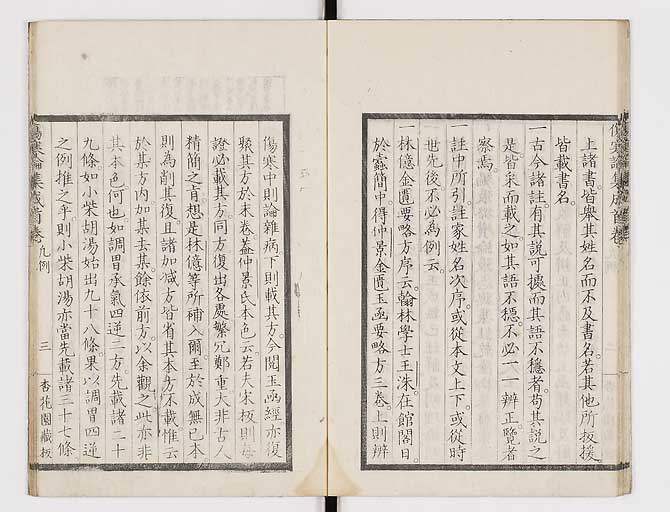 上諸書皆舉其姓名而不及書名若其他所扳援
皆載書名
一古今諸註有其說可據而其語不穩者苟其說之
是皆采而載之如其語不穩不必一一辨正覽者
察焉
一註中所引註家姓名次序或從本文上下或從時
世先後不必爲例云
一林億金匱要略方序云翰林學士王洙在館閣日
於蠹簡中得仲景金匱玉函要略方三卷上則辨
傷寒論集成首卷
傷寒中則論雜病下則載其方今閱玉函經亦復
聚其方於末卷蓋仲景氏本色云若夫宋板則每
證必載其方同方復出各處繁冗鄭重大非古人
精簡之旨想是林億等所補入爾至於成無己本
則爲削其復且諸加減方皆省其本方不載惟云
於某方內加某去某餘依前方以余觀之此亦非
其本色何也如調胃承氣四逆二方先載諸二十
九條如小柴胡湯始出九十八條果以調胃四逆
之例推之乎則小柴胡湯亦當先載諸三十七條
傷寒論集成首卷 凡例 三 杏花園藏板